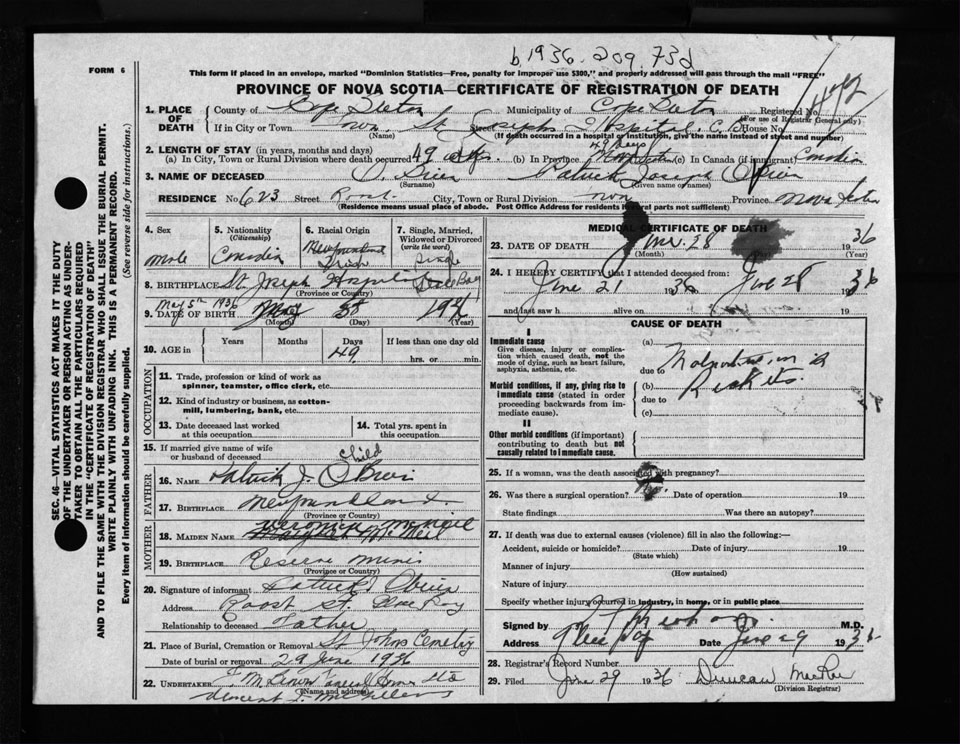 b 1936. 209. 73d
FORM 6
This form if placed in an envelope, marked "Dominion Statistics—Free, penalty for improper use $300," and properly addressed will pass through the mail "FREE"
PROVINCE OF NOVA SCOTIA—CERTIFICATE OF REGISTRATION OF DEATH
1. PLACE OF DEATH
County of Cape Breton Municipality of Cape Breton Registered No.
(For use of Registrar General only)
If in City or Town Street St. Josephs Hospital, House No.
(Name) (If death occurred in a hospital or institution, give the name instead of street and number)
2. LENGTH OF STAY (in years, months and days)
(a) In City, Town or Rural Division where death occurred 49 dys. (b) In Province 49 Days (c) In Canada (if immigrant) Canadian
3. NAME OF DECEASED O'Brien Patrick Joseph O'Brien
(Surname) (Given name or names)
RESIDENCE No. 623 Street Roost. City, Town or Rural Division Province Nova Scotia
(Residence means usual place of abode. Post Office Address for residents of rural parts not sufficient)
4. Sex
Male
5. Nationality
(Citizenship)
Canadian
6. Racial Origin
Newfoundland
Irish
7. Single, Married, Widowed or Divorced
(write the word)
Single
8. BIRTHPLACE St. Joseph Hospital Glace Bay
(Province or Country)
May 5th 1936
9. DATE OF BIRTH May 1936
(Month) (Day) (Year)
10. AGE in
Years Months Days If less than one day old
49 hrs. or min.
OCCUPATION
11. Trade, profession or kind of work as spinner, teamster, office clerk, etc.
12. Kind of industry or business, as cotton-mill, lumbering, bank, etc.
13. Date deceased last worked at this occupation
14. Total yrs. spent in this occupation
15. If married give name of wife or husband of deceased
Child
FATHER
16. NAME Patrick J. O'Brien
17. BIRTHPLACE Newfoundland
(Province or Country)
MOTHER
18. MAIDEN NAME Veronica McNeil
19. BIRTHPLACE Reserve Mines
(Province or Country)
20. Signature of informant Patrick J O'Brien
Address Roost St. Glace Bay
Relationship to deceased Father
21. Place of Burial, Cremation or Removal St Johns Cemetery
Date of burial or removal 29 June 1936
22. UNDERTAKER
(Name and address)
MEDICAL CERTIFICATE OF DEATH
23. DATE OF DEATH June. 28 1936
(Month) (Year)
24. I HEREBY CERTIFY that I attended deceased from:
June 21 1936 June 28 1936
and last saw h alive on 19
CAUSE OF DEATH
I
Immediate cause
Give disease, injury or complication which caused death, not the mode of dying, such as heart failure, asphyxia, asthenia, etc.
(a)
due to Malnutrition &
Morbid conditions, if any, giving rise to immediate cause (stated in order proceeding backwards from immediate cause).
(b) Rickets.
due to
(c)
II
Other morbid conditions (if important) contributing to death but not causally related to immediate cause.
25. If a woman, was the death associated with pregnancy?
26. Was there a surgical operation? No Date of operation 19
State findings Was there an autopsy?
27. If death was due to external causes (violence) fill in also the following:—
Accident, suicide or homicide? Date of injury 19
(State which)
Manner of injury
(How sustained)
Nature of injury
Specify whether injury occurred in industry, in home, or in public place
Signed by M.D.
Address Glace Bay Date June 29 1936
28. Registrar's Record Number
29. Filed June 29 1936 Duncan MacRae
(Division Registrar)
SEC. 46—VITAL STATISTICS ACT MAKES IT THE DUTY
OF THE UNDERTAKER OR PERSON ACTING AS UNDER-
TAKER TO OBTAIN ALL THE PARTICULARS REQUIRED
IN THE "CERTIFICATE OF REGISTRATION OF DEATH"
AND TO FILE THE SAME WITH THE DIVISION REGISTRAR WHO SHALL ISSUE THE BURIAL PERMIT.
WRITE PLAINLY WITH UNFADING INK. THIS IS A PERMANENT RECORD.
Every item of information should be carefully supplied. (See reverse side for instructions.)